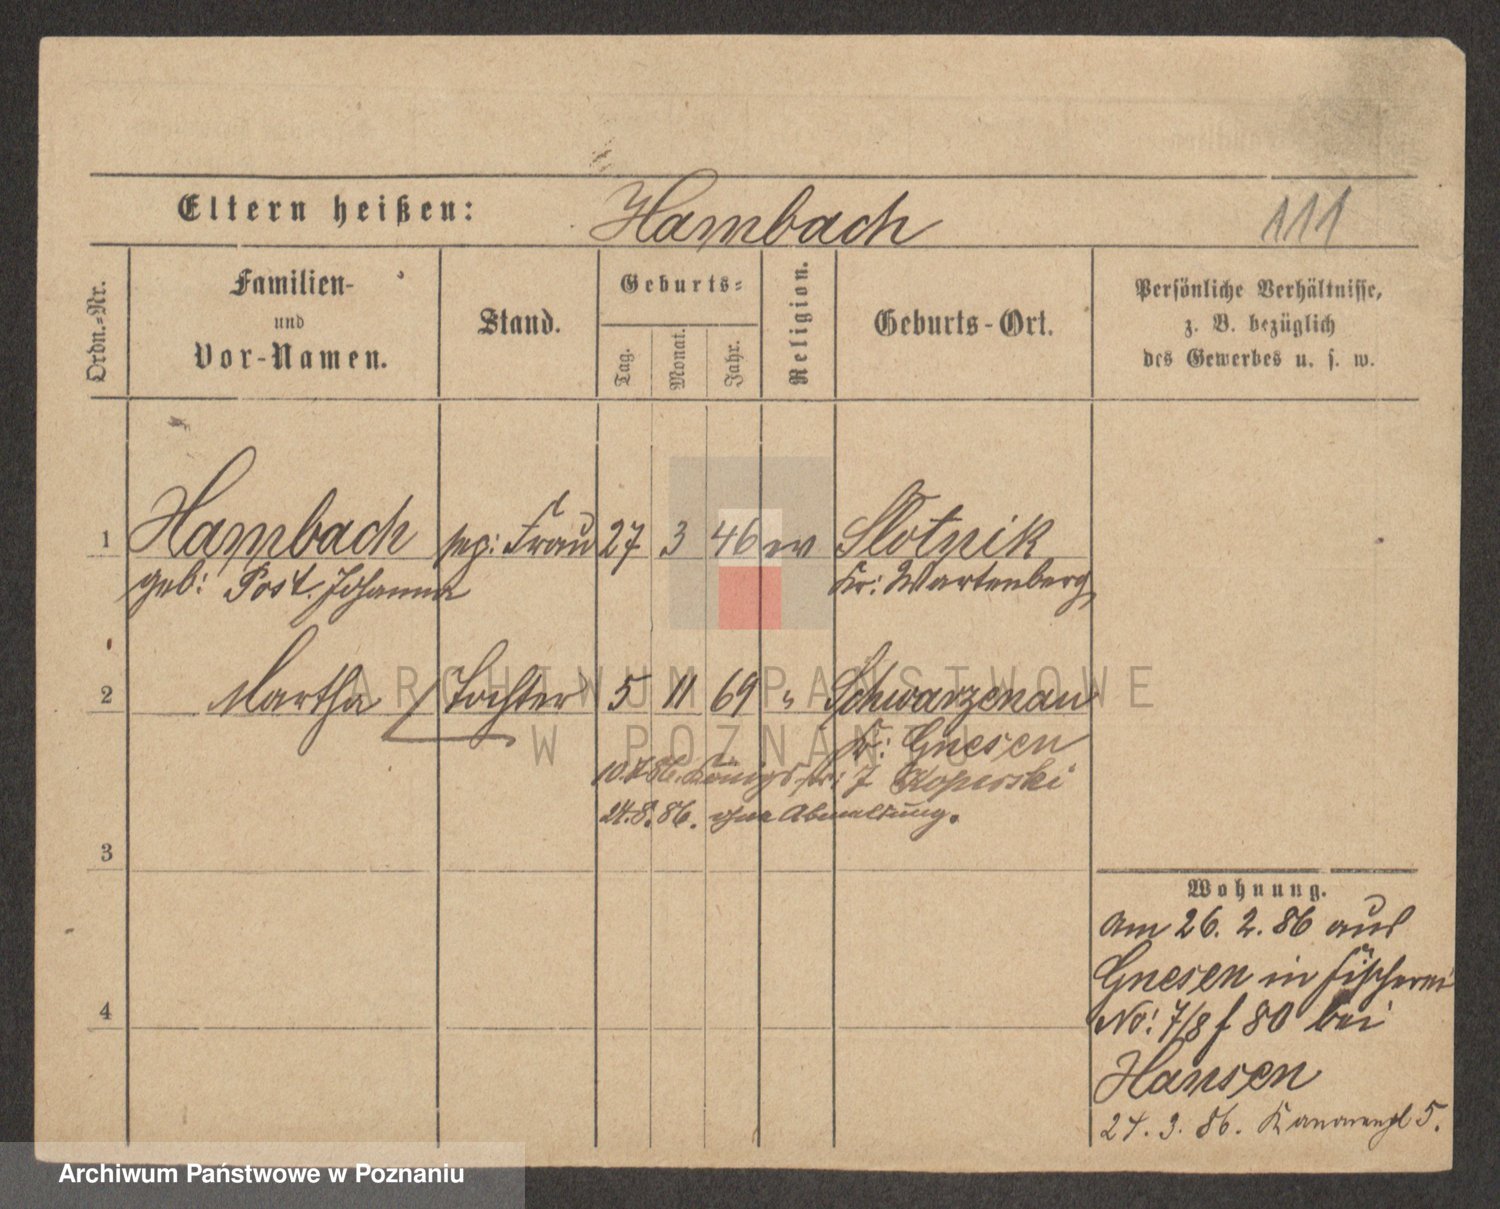 Eltern heißen: Hambach 111
Ordn.-Nr. Familien- und Vor-Namen. Stand. Geburts- Tag. Monat. Jahr. Religion. Geburts-Ort. Persönliche Verhältnisse, z. B. bezüglich des Gewerbes u. s. w.
1 Hambach sep: Frau 27 3 46 ev Slotnik
geb: Post. Johanna Kr: Wartenberg
2 Martha Tochter 5 11 69 " Schwarzenau
Kr: Gnesen
86. Königs J Koperski
24.8.86. ohne Abmeldung.
3
Wohnung.
am 26. 2. 86 aus
Gnesen in Fischerei
4
No: 7/8 f 80 bei
Hansen
24. 3. 86. 5.
ARCHIWUM PAŃSTWOWE
W POZNANIU
Archiwum Państwowe w Poznaniu